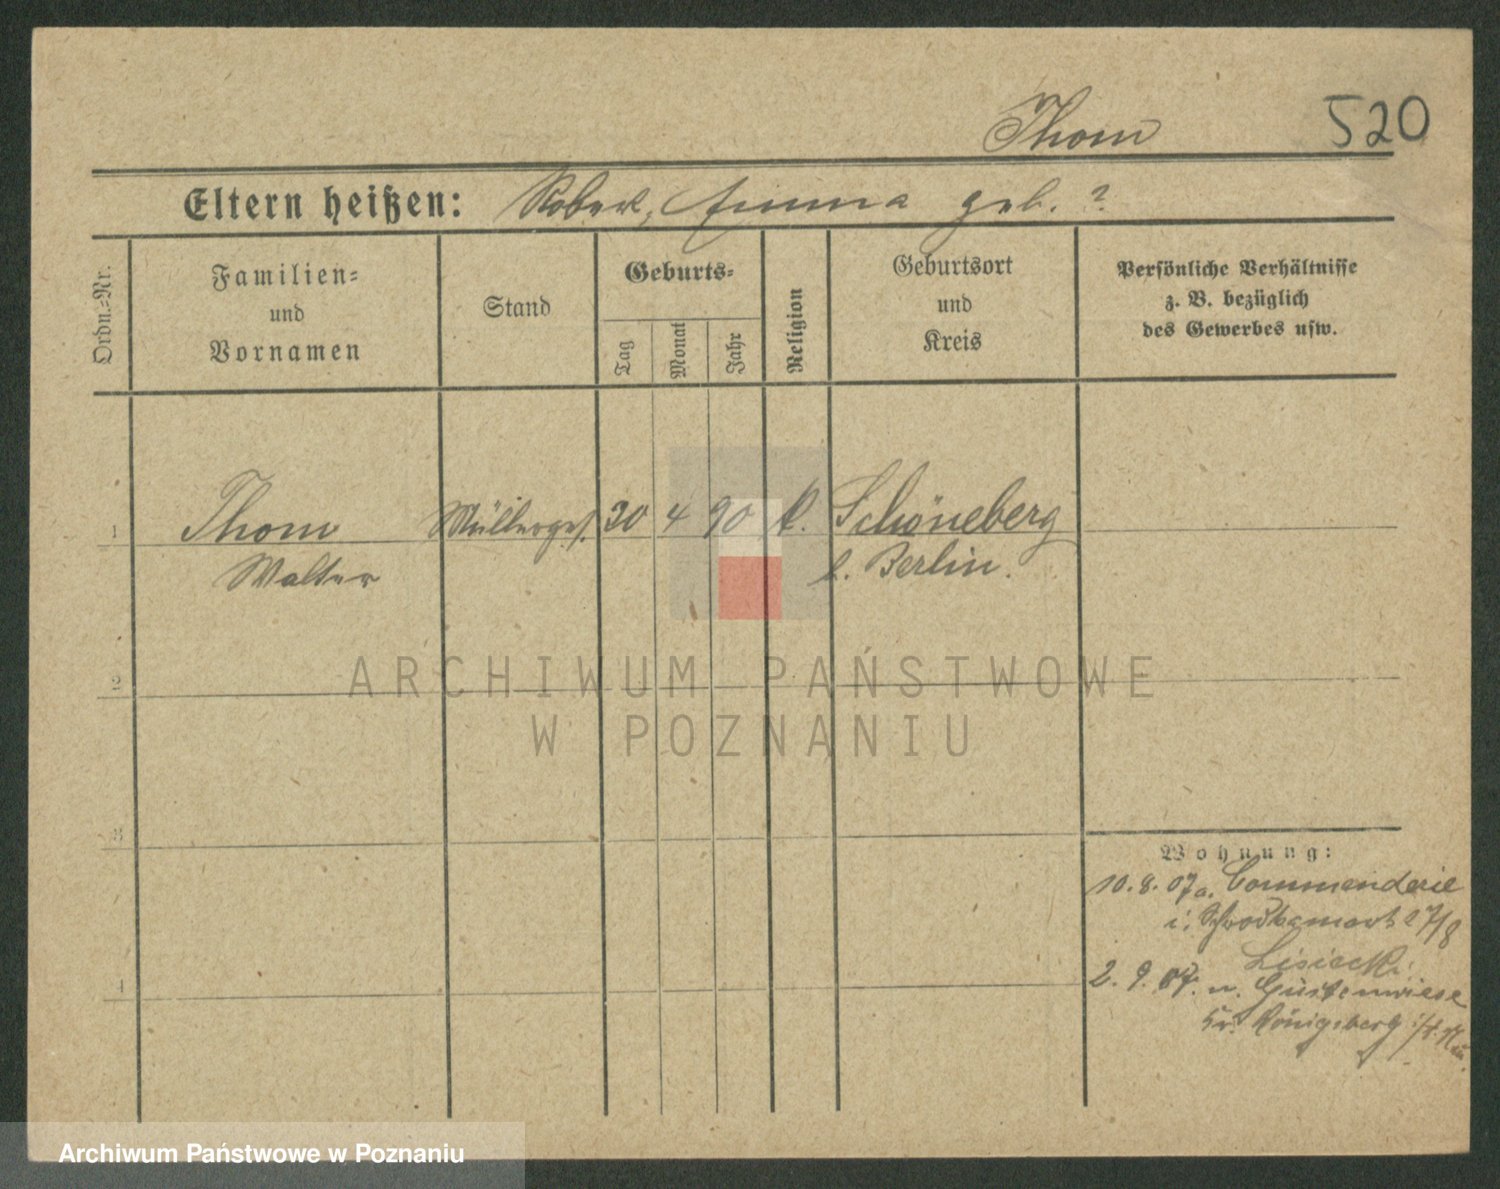 Thom 520
Eltern heißen: Robert, Emma geb. ?
Ordn.-Nr.
Familien-
und
Vornamen
Stand
Geburts-
Tag
Monat
Jahr
Religion
Geburtsort
und
Kreis
Persönliche Verhältnisse
z. B. bezüglich
des Gewerbes usw.
1 Thom Müllerges. 30 4 90 Schöneberg
Walter b. Berlin.
2
3
4
Wohnung:
10.8.07 a. Commenderie
i. 27/8
Lisiecki
2.9.07. n. Güstenwiese
Kr. Königsberg
ARCHIWUM PAŃSTWOWE
W POZNANIU
Archiwum Państwowe w Poznaniu